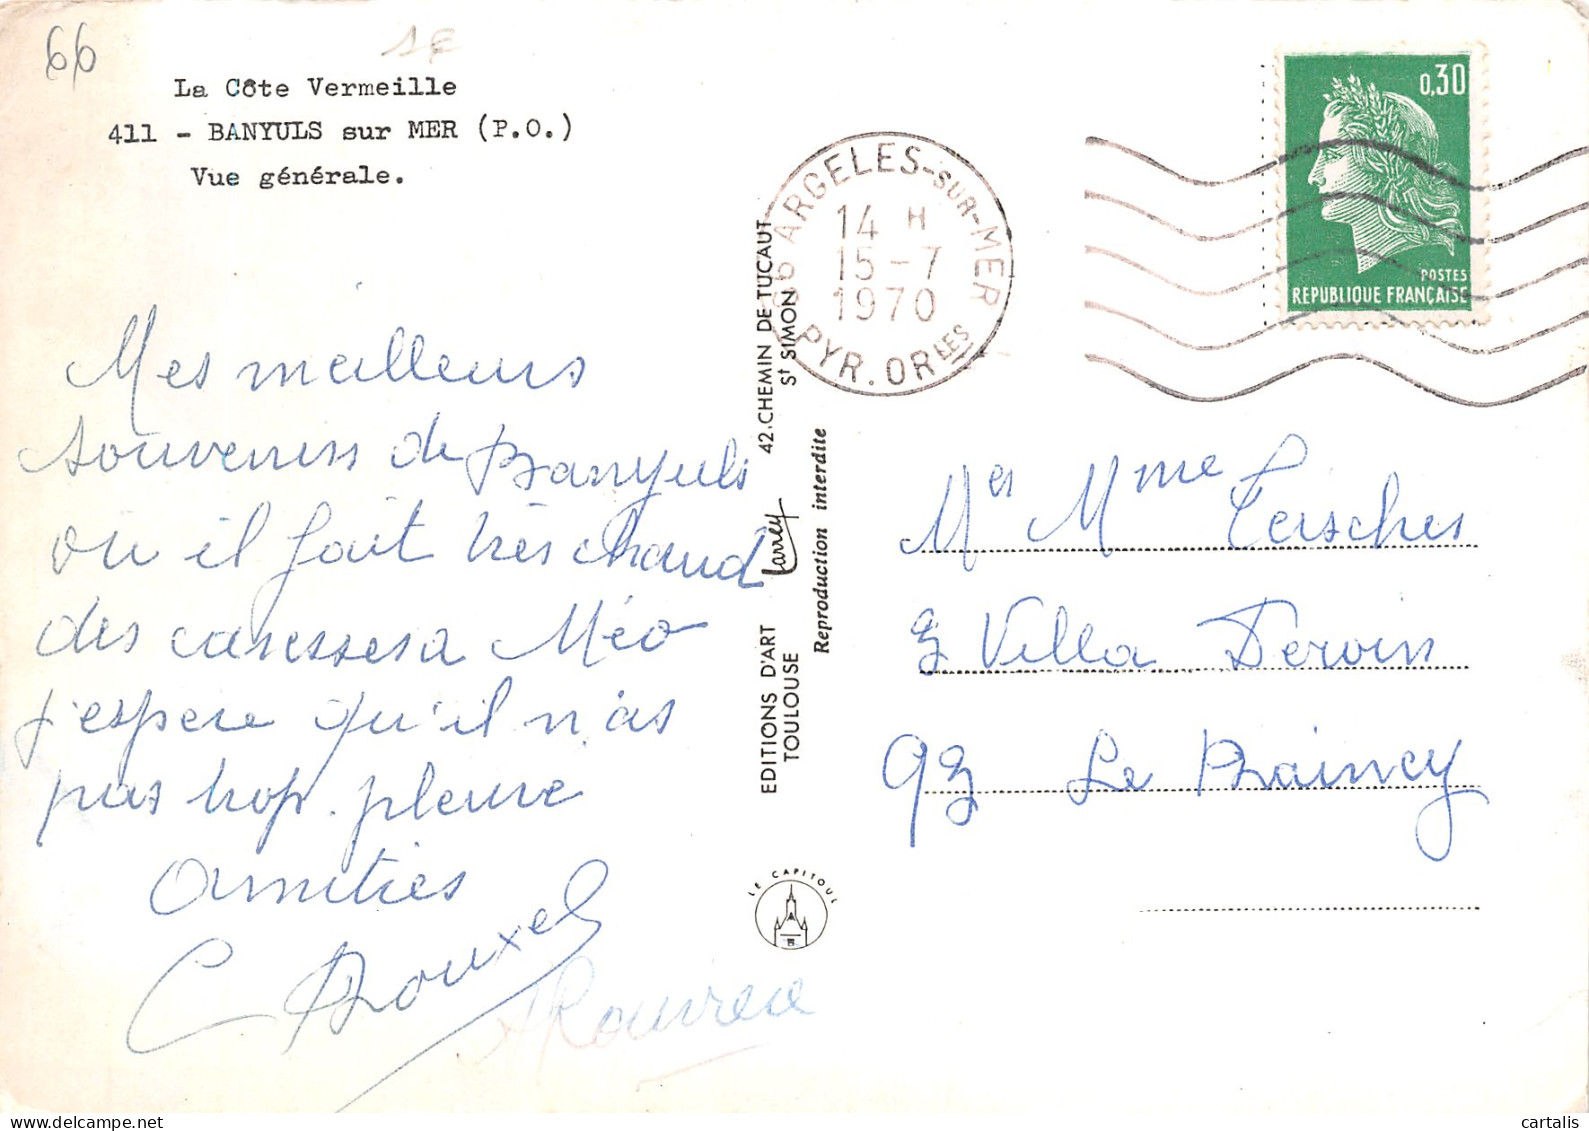 66
1€
La Côte Vermeille
411 - BANYULS sur MER (P.O.)
Vue générale.
Mes meilleurs
souvenirs de Banyuls
où il fait très chaud
des caresses a Méo
j'espere qu'il n'as
pas trop. pleure
Amitiés
C Rouxel
42, CHEMIN DE TUCAUT
St SIMON
Larrey
EDITIONS D'ART
TOULOUSE
Reproduction interdite
LE CAPITOUL
66 ARGELES-SUR-MER
14 H
15-7
1970
PYR. ORLES
0,30
POSTES
REPUBLIQUE FRANÇAISE
Mer Mme Tersches
3 Villa Dervin
93 Le Raincy
cartalis